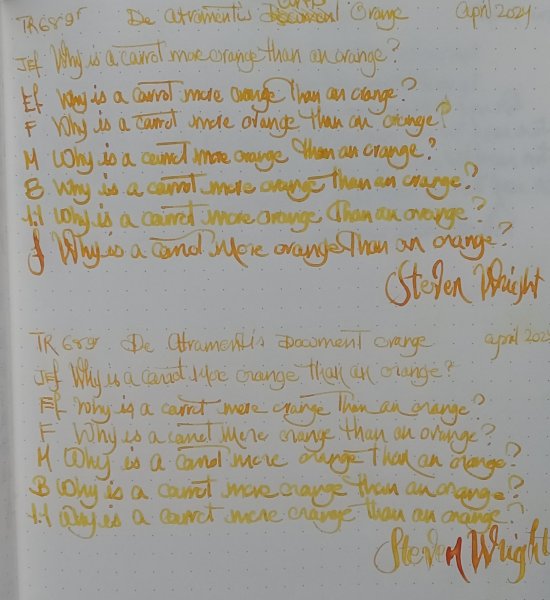 TR 68gr De Atramentis Document Orange April 2024
JEf Why is a carrot more orange than an orange?
Ef Why is a carrot more orange than an orange?
F Why is a carrot more orange than an orange?
M Why is a carrot more orange than an orange?
B Why is a carrot more orange than an orange?
1.1 Why is a carrot more orange than an orange?
f Why is a carrot more orange than an orange?
Steven Wright
TR 68gr De Atramentis Document Orange april 202
JEf Why is a carrot more orange than an orange?
Ef Why is a carrot more orange than an orange?
F Why is a carrot more orange than an orange?
M Why is a carrot more orange than an orange?
B Why is a carrot more orange than an orange?
1.1 Why is a carrot more orange than an orange?
Steven Wright